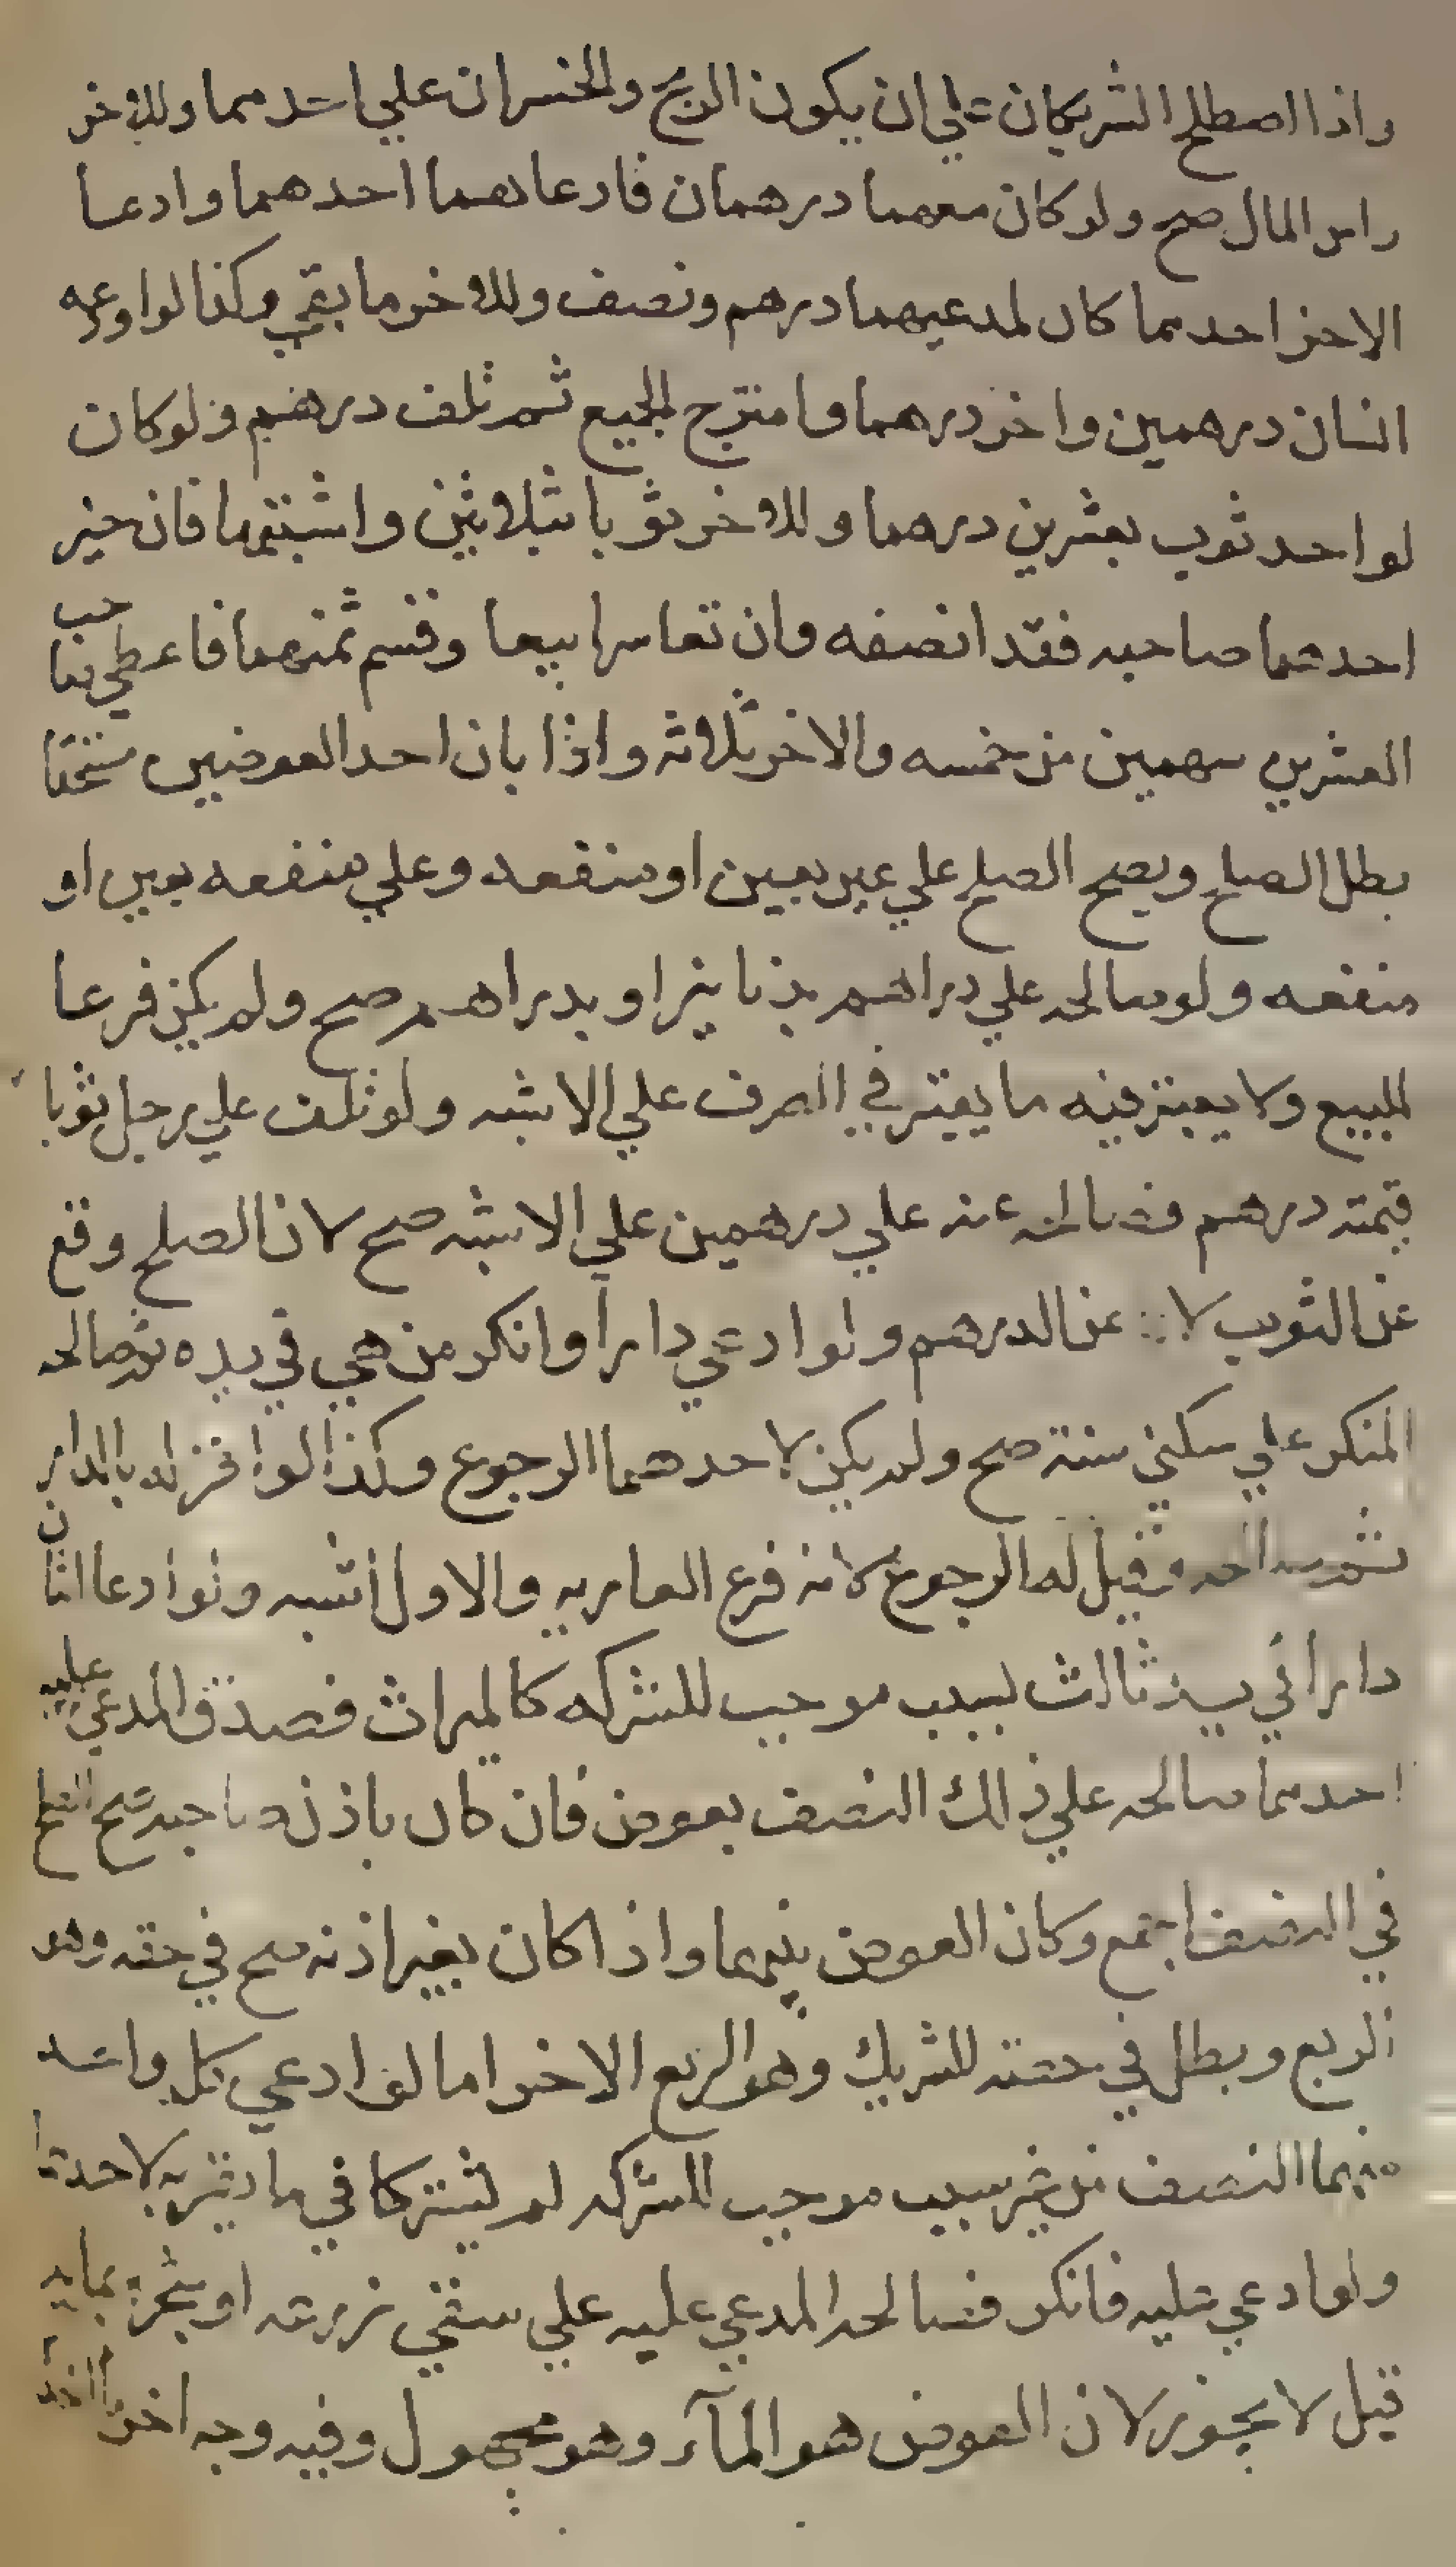 واذا اصطلح الشريكان علي ان يكون الربح والخسران علي احدهما وللاخر
راس المال صح ولو كان معهما درهمان فادعاهما احدهما وادعا
الاخر احدهما كان لمدعيهما درهم ونصف وللاخر ما بقي وكذا لو اودعه
انسان درهمين واخر درهما وامتزج الجميع ثم تلف درهم ولو كان
لواحد ثوب بعشرين درهما وللاخر ثوبا بثلاثين واشبتهما فان خير
احدهما صاحبه فقد انصفه وان تعاسرا بيعا وقسم ثمنهما فاعطي صاحب
العشرين سهمين من خمسه والاخر ثلاثه واذا بان احد العوضين مستحقا
بطل الصلح ويصح الصلح علي عين بعين او منفعه وعلي منفعه بعين او
منفعه ولو صالحه علي دراهم بدنانير او بدراهم صح ولم يكن فرعا
للبيع ولا يعتبر فيه ما يعتبر في الصرف علي الاشبه ولو تلف علي رجل ثوبا
قيمته درهم فصالحه عنه علي درهمين علي الاشبه صح لان الصلح وقع
عن الثوب لا عن الدرهم ولو ادعي دارا وانكر من هي في يده ثم صالحه
المنكر علي سكني سنة صح ولم يكن لاحدهما الرجوع وكذا لو اقر له بالدار
ثم صالحه وقيل له الرجوع لانه فرع العاريه والاول اشبه ولو ادعا اثنان
دارا في يد ثالث لسبب موجب للشركه كالميراث فصدق المدعي عليه
احدهما صالحه علي ذالك النصف بعوض فان كان باذن صاحبه صح الصلح
في النصف اجمع وكان العوض بينهما واذا كان بغير اذنه صح في حقه وهو
الربع وبطل في حصة للشريك وهو الربع الاخر اما لو ادعي كل واحد
منهما النصف من غير سبب موجب للشركه لم يشتركا في ما يقر به لاحدهما
ولو ادعي عليه فانكر فصالحه المدعي عليه علي سقي زرعه او شجره بمايه
قيل لا يجوز لان العوض هو المآء وهو مجهول وفيه وجه اخر